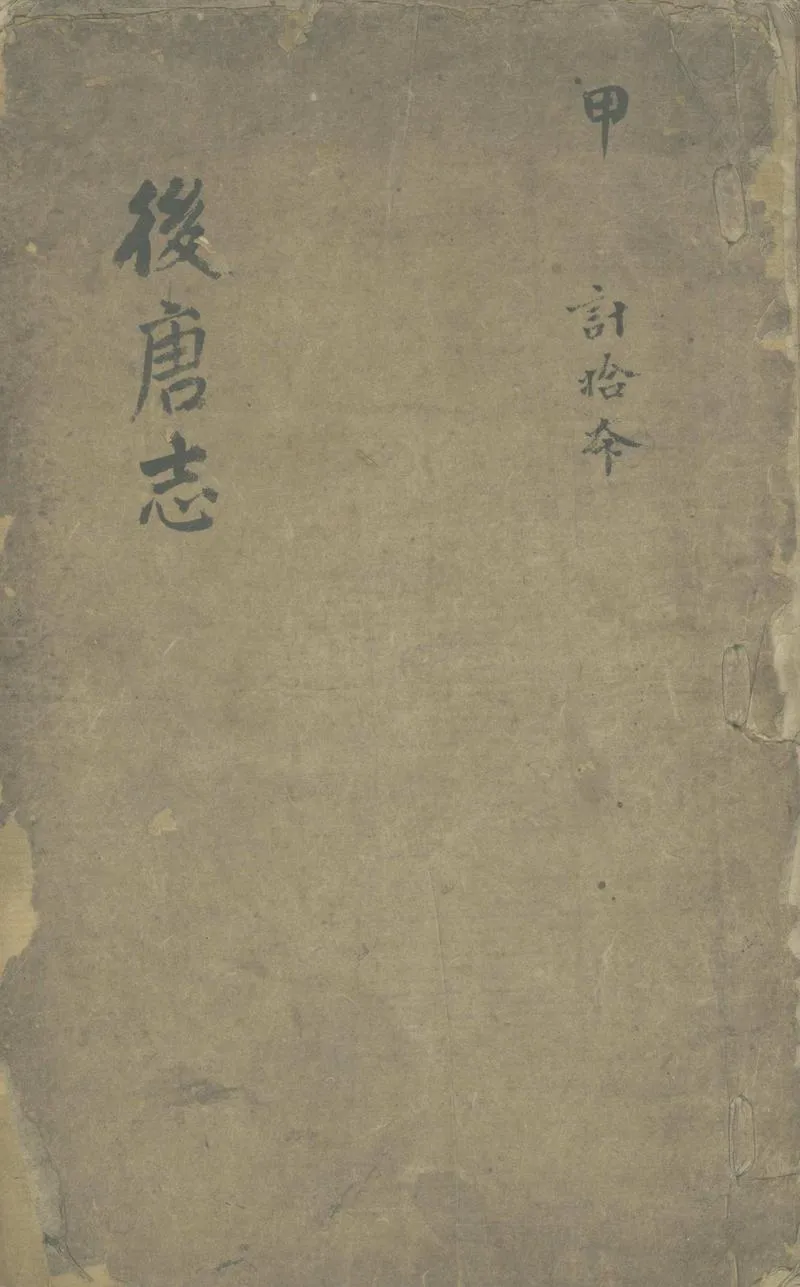 甲 計拾夲
後唐志